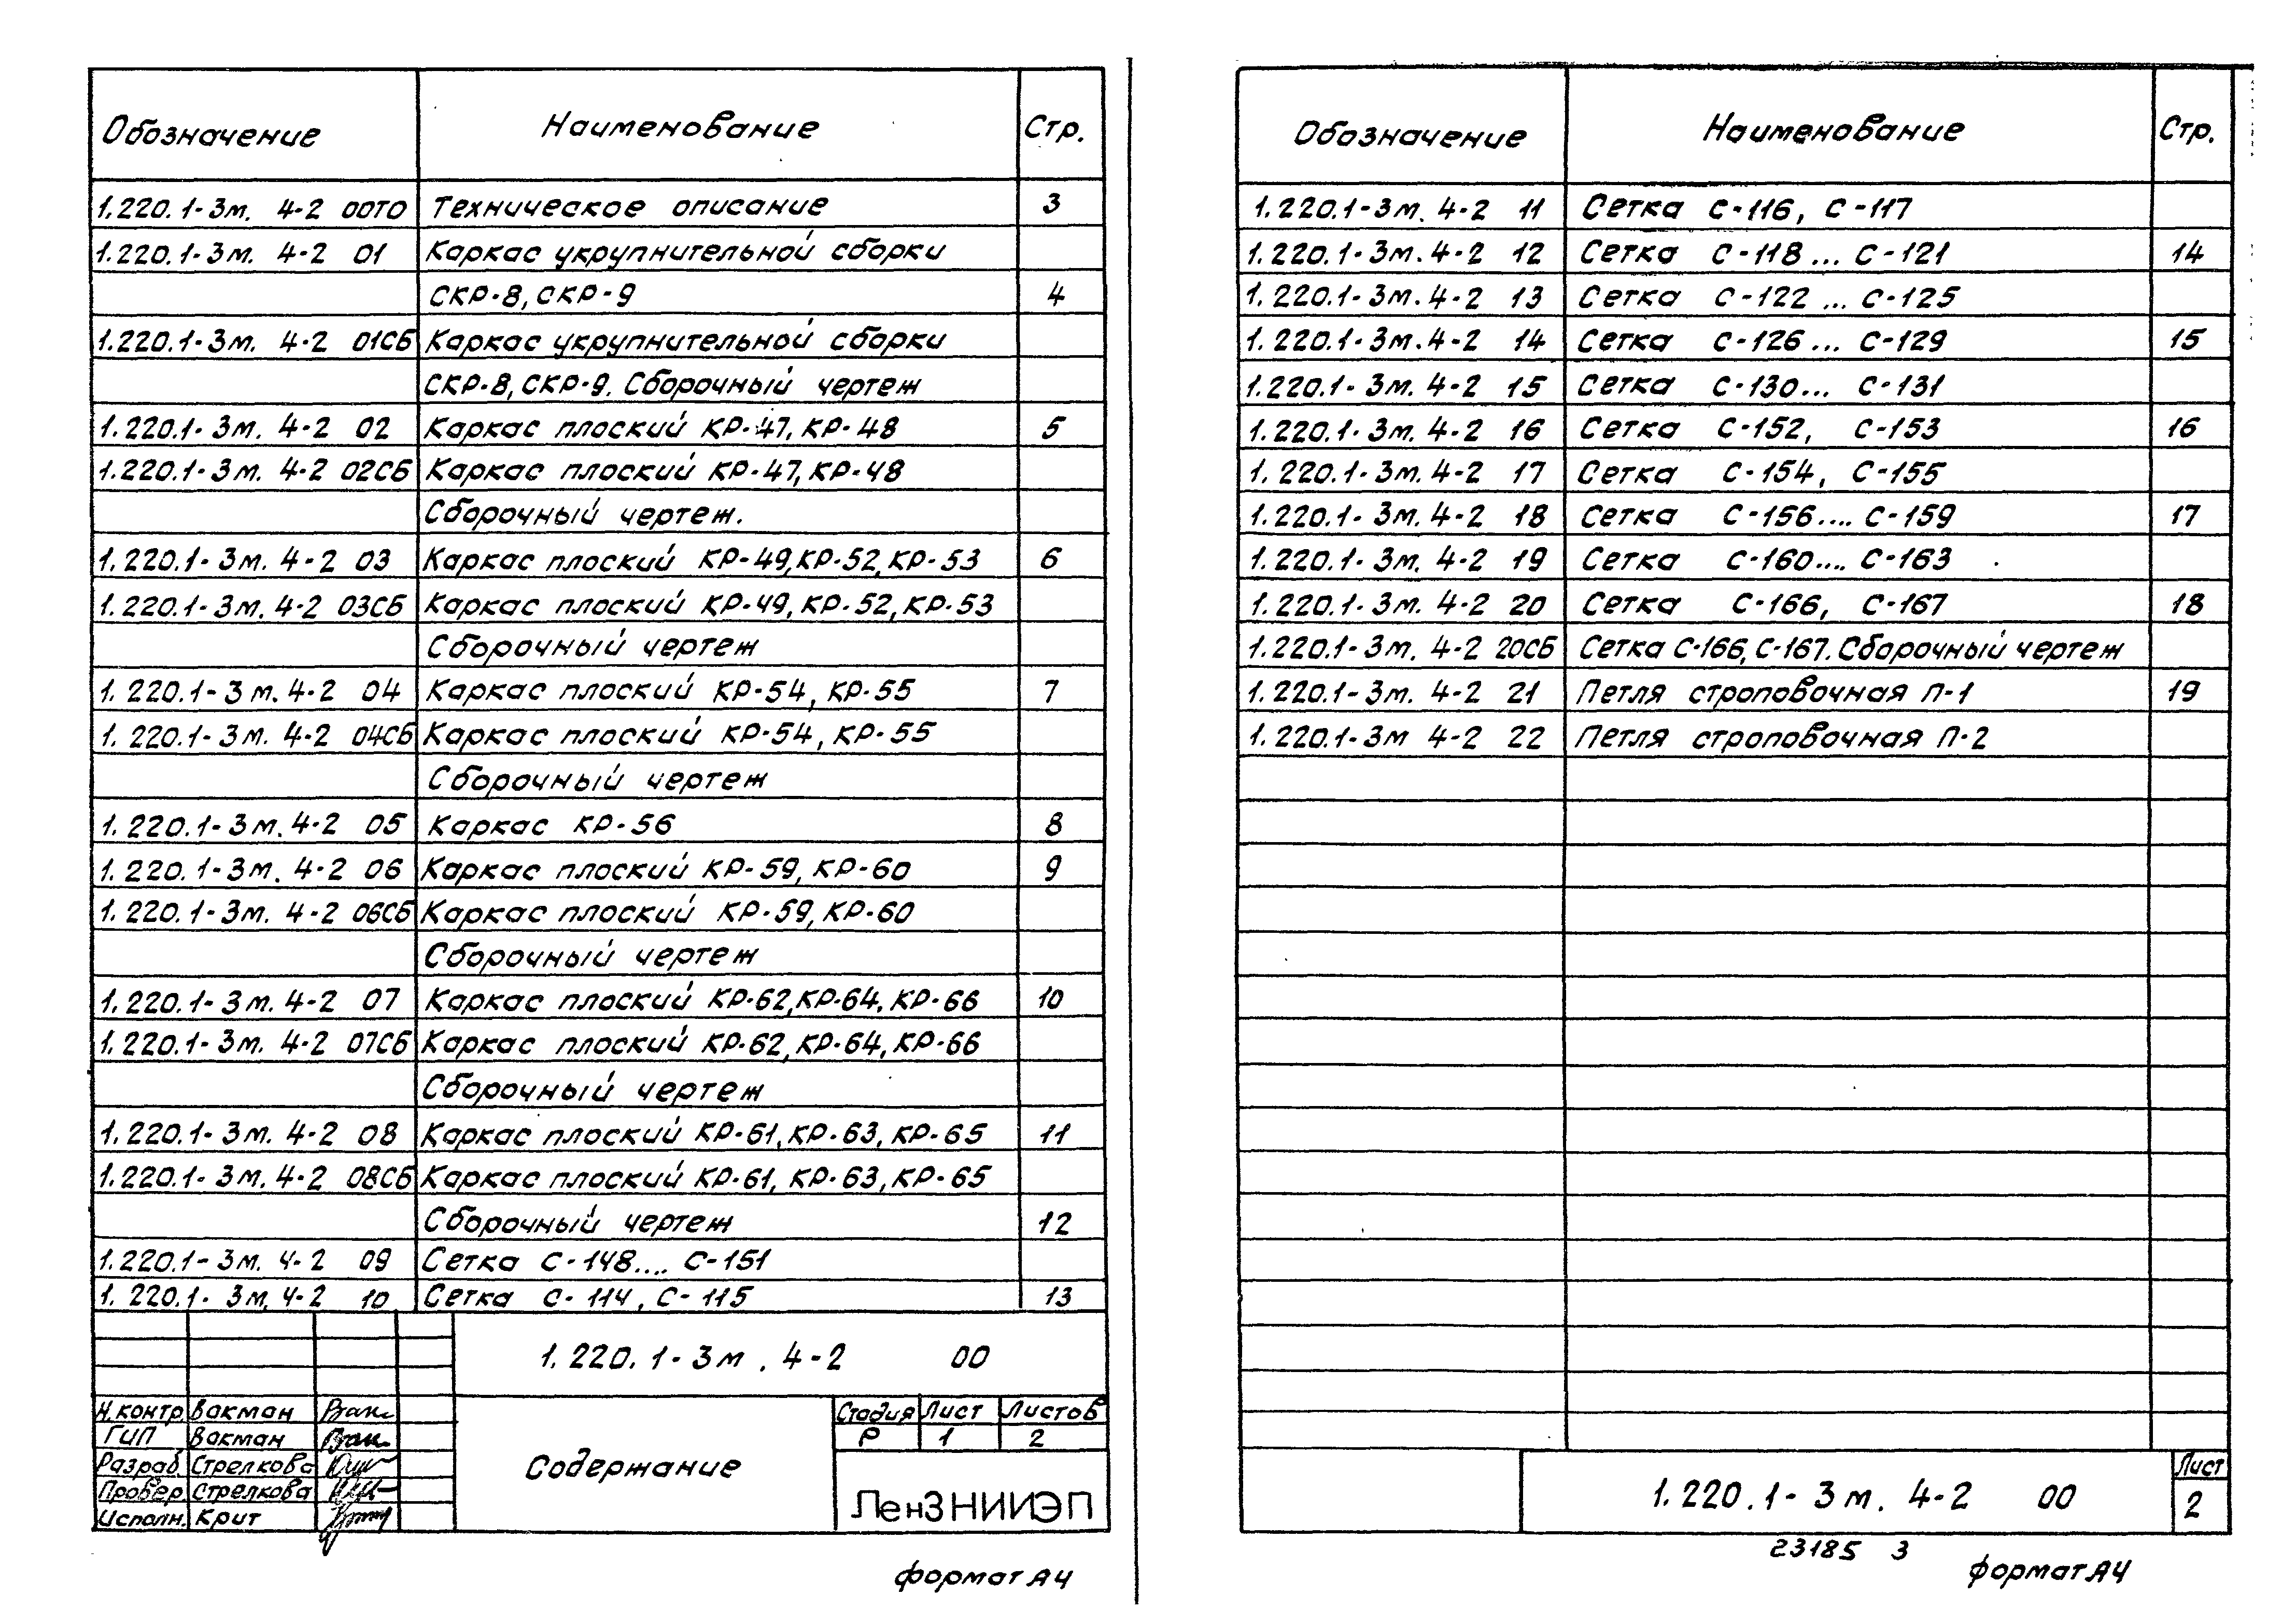 Обозначение Наименование Стр.
1.220.1-3м. 4-2 00ТО Техническое описание 3
1.220.1-3м. 4-2 01 Каркас укрупнительной сборки
СКР-8, СКР-9 4
1.220.1-3м. 4-2 01СБ Каркас укрупнительной сборки
СКР-8, СКР-9. Сборочный чертеж
1.220.1-3м. 4-2 02 Каркас плоский КР-47, КР-48 5
1.220.1-3м. 4-2 02СБ Каркас плоский КР-47, КР-48
Сборочный чертеж.
1.220.1-3м. 4-2 03 Каркас плоский КР-49, КР-52, КР-53 6
1.220.1-3м. 4-2 03СБ Каркас плоский КР-49, КР-52, КР-53
Сборочный чертеж
1.220.1-3м. 4-2 04 Каркас плоский КР-54, КР-55 7
1.220.1-3м. 4-2 04СБ Каркас плоский КР-54, КР-55
Сборочный чертеж
1.220.1-3м. 4-2 05 Каркас КР-56 8
1.220.1-3м. 4-2 06 Каркас плоский КР-59, КР-60 9
1.220.1-3м. 4-2 06СБ Каркас плоский КР-59, КР-60
Сборочный чертеж
1.220.1-3м. 4-2 07 Каркас плоский КР-62, КР-64, КР-66 10
1.220.1-3м. 4-2 07СБ Каркас плоский КР-62, КР-64, КР-66
Сборочный чертеж
1.220.1-3м. 4-2 08 Каркас плоский КР-61, КР-63, КР-65 11
1.220.1-3м. 4-2 08СБ Каркас плоский КР-61, КР-63, КР-65
Сборочный чертеж 12
1.220.1-3м. 4-2 09 Сетка С-148.... С-151
1.220.1-3м. 4-2 10 Сетка С-114, С-115 13
1.220.1-3м. 4-2 00
Н.контр. Вакман
ГИП Вакман
Разраб. Стрелкова
Провер. Стрелкова
Исполн. Крит
Содержание
Стадия Лист Листов
Р 1 2
ЛенЗНИИЭП
формат А4
Обозначение Наименование Стр.
1.220.1-3м. 4-2 11 Сетка С-116, С-117
1.220.1-3м. 4-2 12 Сетка С-118... С-121 14
1.220.1-3м. 4-2 13 Сетка С-122 ... С-125
1.220.1-3м. 4-2 14 Сетка С-126... С-129 15
1.220.1-3м. 4-2 15 Сетка С-130... С-131
1.220.1-3м. 4-2 16 Сетка С-152, С-153 16
1.220.1-3м. 4-2 17 Сетка С-154, С-155
1.220.1-3м. 4-2 18 Сетка С-156.... С-159 17
1.220.1-3м. 4-2 19 Сетка С-160.... С-163
1.220.1-3м. 4-2 20 Сетка С-166, С-167 18
1.220.1-3м. 4-2 20СБ Сетка С-166, С-167. Сборочный чертеж
1.220.1-3м. 4-2 21 Петля строповочная П-1 19
1.220.1-3м 4-2 22 Петля строповочная П-2
1.220.1-3м. 4-2 00
Лист
2
23185 3
формат А4